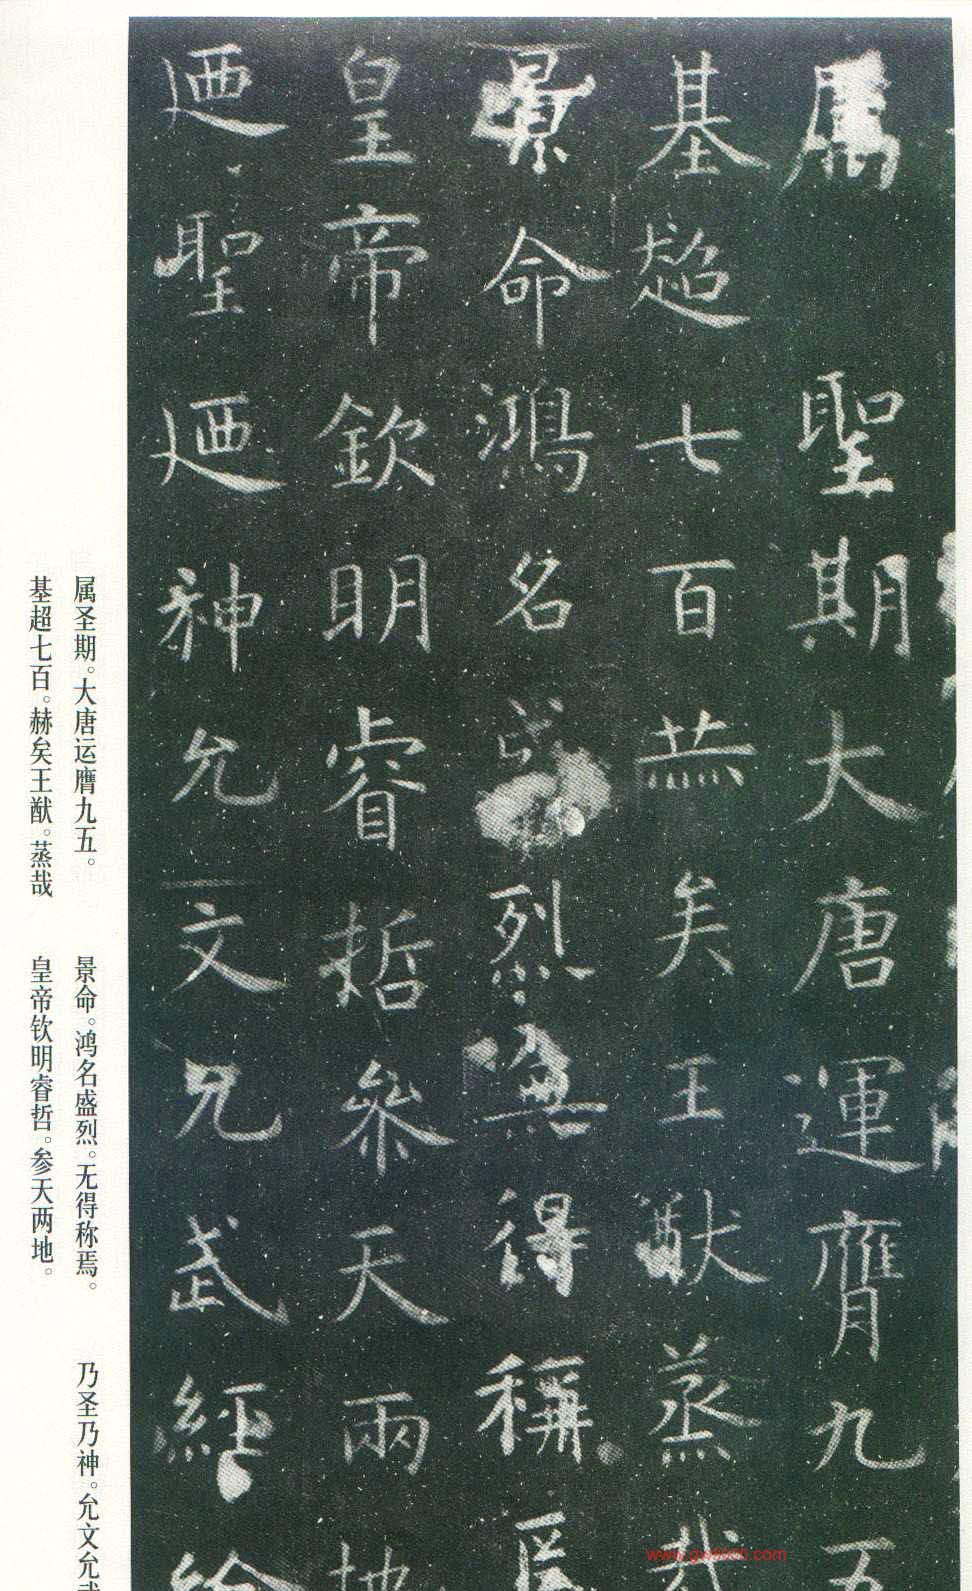 屬聖期大唐運膺九五
基超七百赫矣王猷蒸哉
景命鴻名盛烈無得稱焉
皇帝欽明睿哲參天兩地
廼聖廼神允文允武經
属圣期。大唐运膺九五。
基超七百。赫矣王猷。蒸哉
景命。鸿名盛烈。无得称焉。
皇帝钦明睿哲。参天两地。
乃圣乃神。允文允武